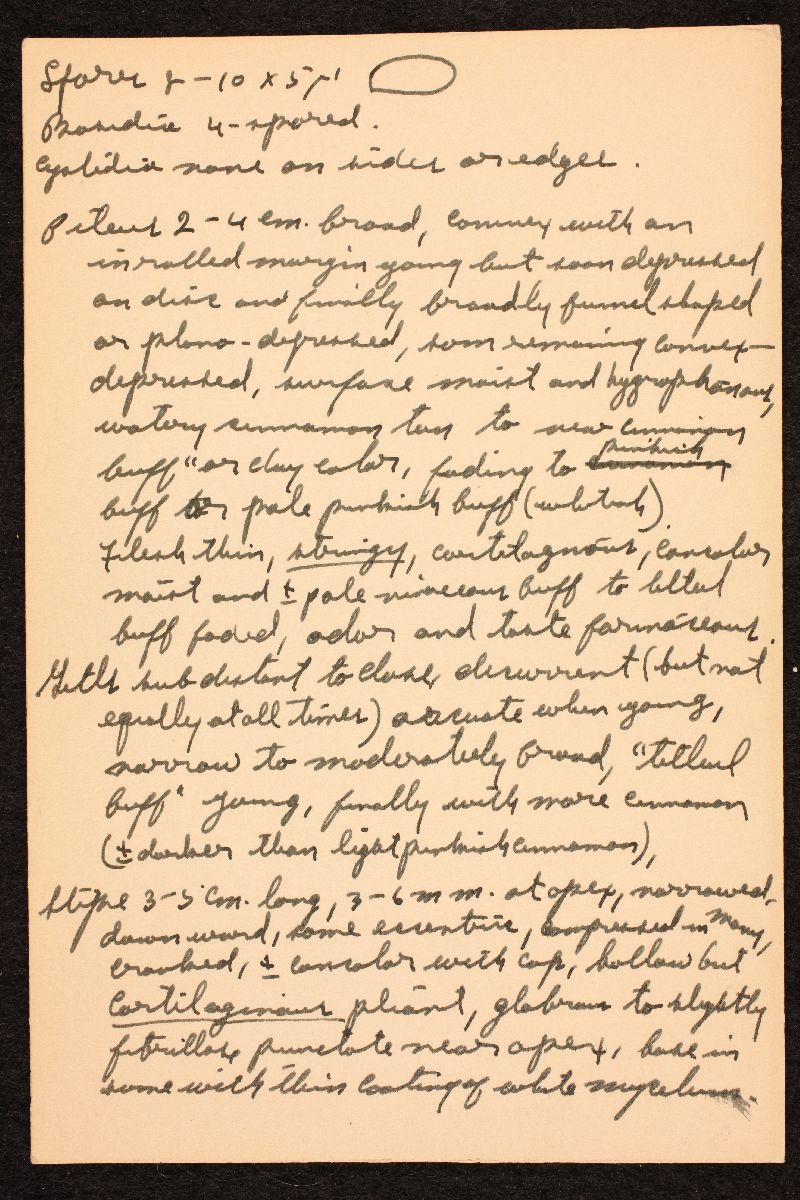 Spores 8-10 x 5 μ
Basidia 4-spored.
Cystidia none on sides or edges.
Pileus 2-4 cm. broad, convex with an
inrolled margin young but soon depressed
on disc and finally broadly funnel shaped
or plano-depressed, som remaining convex-
depressed, surface moist and hygrophanous,
watery cinnamon tan to near cinnamon
buff" or clay color, fading to pinkish
buff or pale pinkish buff (whitish)
Flesh thin, stringy, cartilagnous, concolor
moist and ± pale buff to tilleul
buff faded, odor and taste farinaceous.
Gills subdistant to close, decurrent (but not
equally at all times) arcuate when young,
narrow to moderately broad, "tilleul
buff" young, finally with more cinnamon
(± darker than light pinkish cinnamon),
Stipe 3-5 cm. long, 3-6 mm. at apex, narrowed
downward, some eccentric, compressed in many,
crooked, ± concolor with cap, hollow but
cartilaginous pliant, glabrous to slightly
fibrillose punctate near apex, base in
some with thin coating of white mycelium.